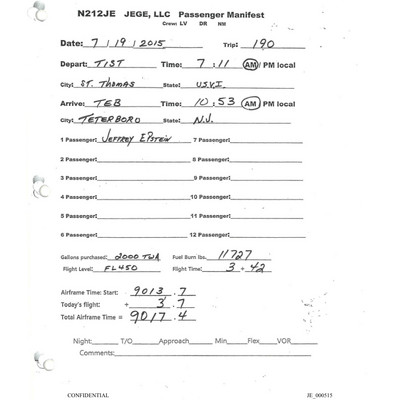 N212JE JEGE, LLC Passenger Manifest
Crew: LV DR NM
Date: 7 / 19 / 2015 Trip: 190
Depart: TIST Time: 7 : 11 AM / PM local
City: ST. THOMAS State: U.S.V.I.
Arrive: TEB Time: 10 : 53 AM / PM local
City: TETERBORO State: N.J.
1 Passenger: JEFFREY EPSTEIN 7 Passenger:
2 Passenger: 8 Passenger:
3 Passenger: 9 Passenger:
4 Passenger: 10 Passenger:
5 Passenger: 11 Passenger:
6 Passenger: 12 Passenger:
Gallons purchased: 2000 TWA Fuel Burn lbs. 11727
Flight Level: FL450 Flight Time: 3 + 42
Airframe Time: Start: 9013 .7
Today's flight: + 3 .7
Total Airframe Time = 9017 .4
Night: T/O Approach Min Flex VOR
Comments:
CONFIDENTIAL JE_000515